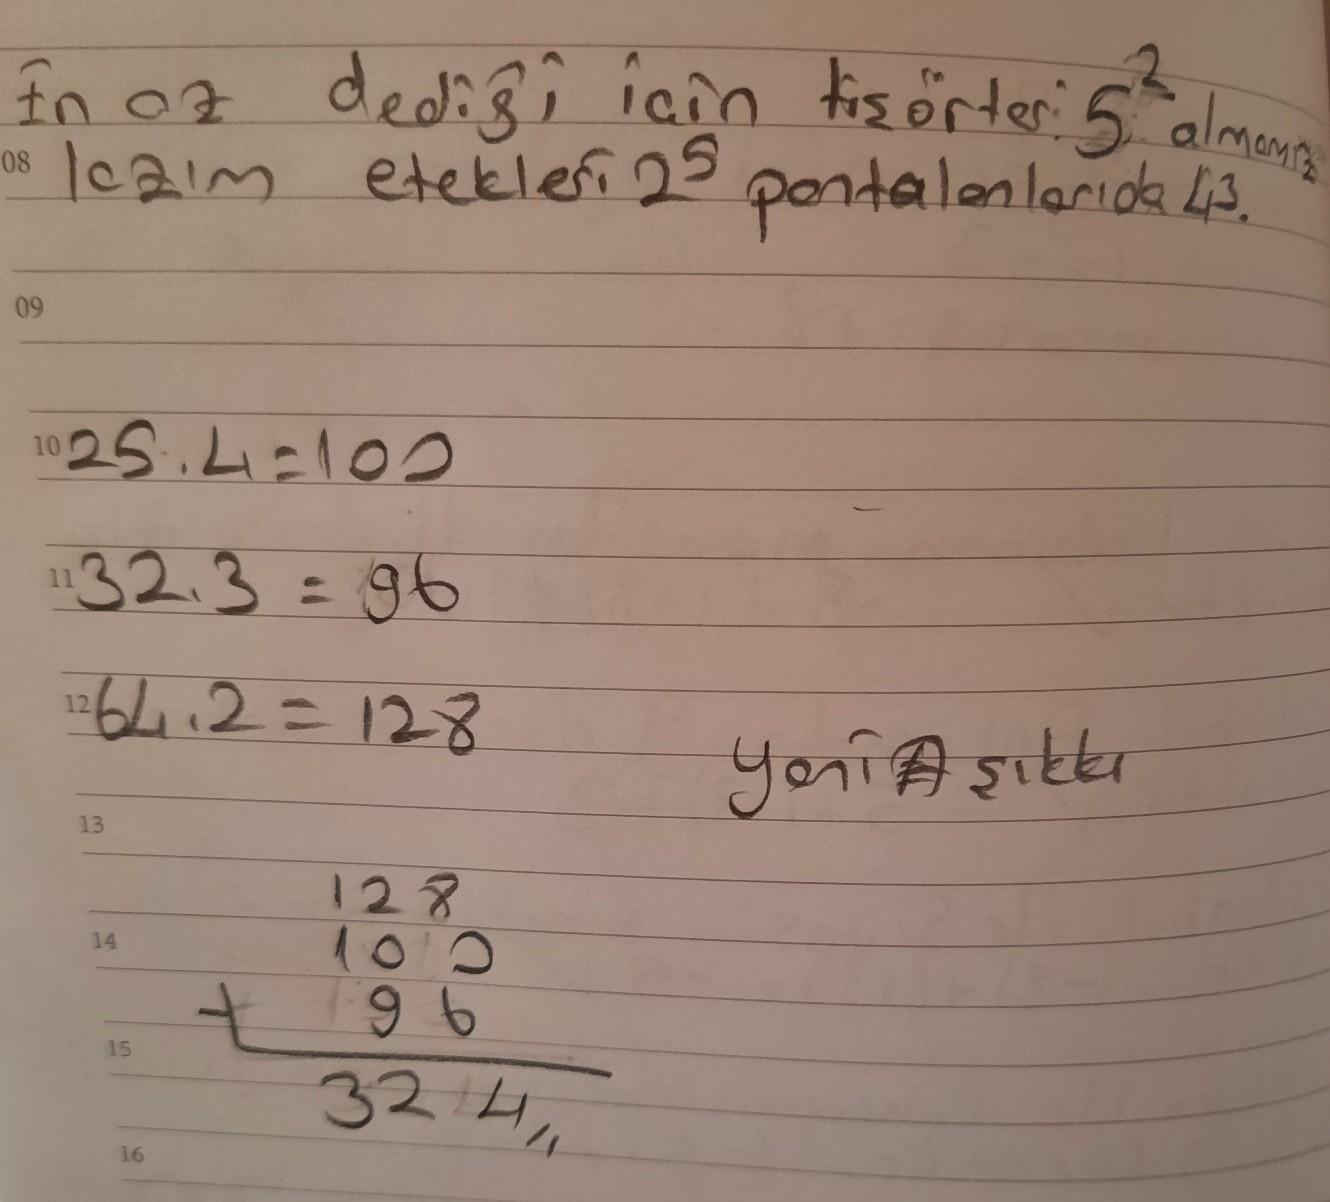 En az dediği için tişörteri 5² almamız
08 lazım etekleri 2⁵ pantalonlarıda 43.
09
10 25.4=100
11 32.3 = 96
12 64.2 = 128
yani A şıkkı
13
128
14 100
+ 96
15
324,,
16